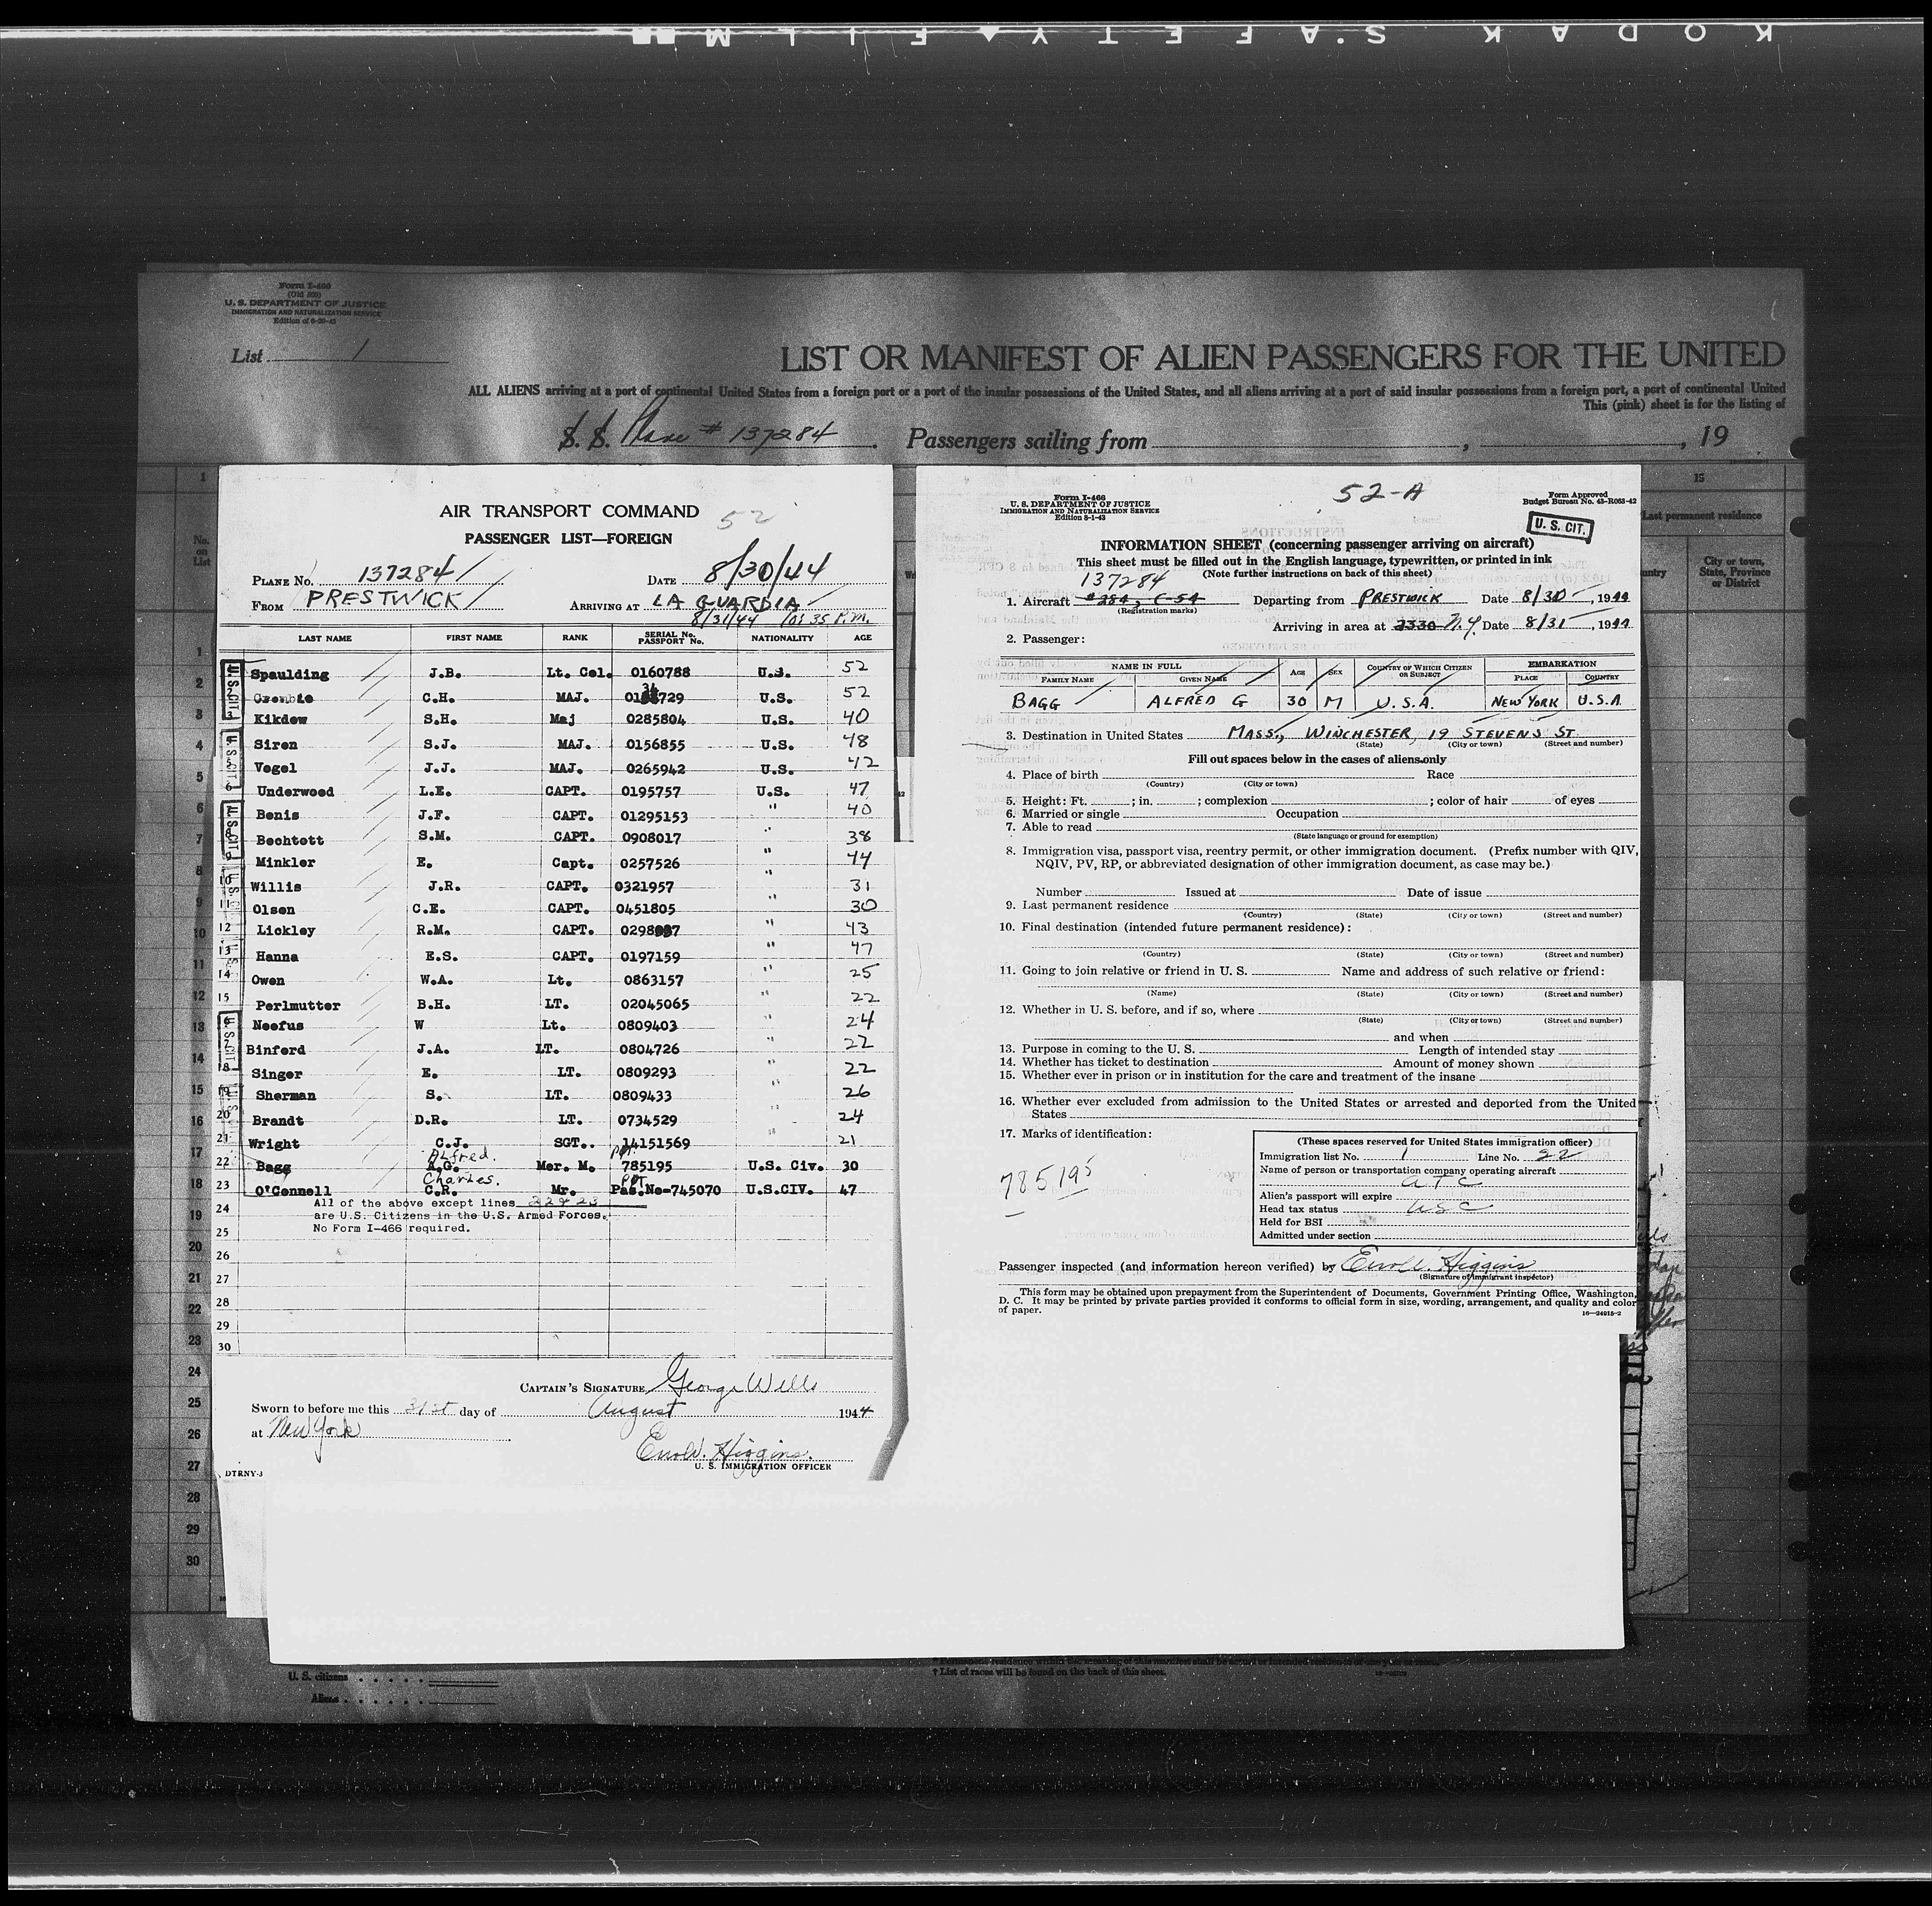 KODAK SAFETY FILM
Form I-466
(Old 500)
U. S. DEPARTMENT OF JUSTICE
IMMIGRATION AND NATURALIZATION SERVICE
List 1
LIST OR MANIFEST OF ALIEN PASSENGERS FOR THE UNITED
ALL ALIENS arriving at a port of continental United States from a foreign port or a port of the insular possessions of the United States, and all aliens arriving at a port of said insular possessions from a foreign port, a port of continental United
This (pink) sheet is for the listing of
S. S. Plane # 137284. Passengers sailing from , , 19
AIR TRANSPORT COMMAND 52
PASSENGER LIST—FOREIGN
PLANE No. 137284 DATE 8/30/44
FROM PRESTWICK ARRIVING AT LA GUARDIA
8/31/44 10:35 P.M.
LAST NAME FIRST NAME RANK SERIAL No. PASSPORT No. NATIONALITY AGE
Spaulding J.B. Lt. Col. 0160788 U.S. 52
C.H. MAJ. U.S. 52
3 Kikdew S.H. Maj 0285804 U.S. 40
Siren S.J. MAJ. 0156855 U.S. 48
Vogel J.J. MAJ. 0265942 U.S. 42
6 Underwood L.E. CAPT. 0195757 U.S. 47
Benis J.F. CAPT. 01295153 " 40
Bechtott S.M. CAPT. 0908017 " 38
Minkler E. Capt. 0257526 " 44
10 Willis J.R. CAPT. 0321957 " 31
11 Olsen C.E. CAPT. 0451805 " 30
12 Lickley R.M. CAPT. " 43
13 Hanna E.S. CAPT. 0197159 " 47
14 Owen W.A. Lt. 0863157 " 25
15 Perlmutter B.H. LT. 02045065 " 22
Neefus W Lt. 0809403 " 24
Binford J.A. LT. 0804726 " 22
Singer E. LT. 0809293 " 22
Sherman S. LT. 0809433 " 26
20 Brandt D.R. LT. 0734529 " 24
21 Wright C.J. SGT.. 14151569 " 21
Alfred. PPT.
22 Bagg A.G. Mer. M. 785195 U.S. Civ. 30
Charles. PPT
23 O'Connell C.R. Mr. Pas.No-745070 U.S.CIV. 47
24 All of the above except lines 22 & 23
are U.S. Citizens in the U.S. Armed Forces.
25 No Form I-466 required.
26
27
28
29
30
CAPTAIN'S SIGNATURE George Wells
Sworn to before me this 31st day of August 1944
at New York
Errol W. Higgins.
U. S. IMMIGRATION OFFICER
DTRNY-3
52-A
Form I-466
U. S. DEPARTMENT OF JUSTICE
IMMIGRATION AND NATURALIZATION SERVICE
Edition 8-1-43
Form Approved
Budget Bureau No. 43-R063-42
U. S. CIT.
INFORMATION SHEET (concerning passenger arriving on aircraft)
This sheet must be filled out in the English language, typewritten, or printed in ink
(Note further instructions on back of this sheet)
137284
1. Aircraft #284, C-54 Departing from PRESTWICK Date 8/30, 1944
(Registration marks)
Arriving in area at 2330 N.Y. Date 8/31, 1944
2. Passenger:
NAME IN FULL AGE SEX COUNTRY OF WHICH CITIZEN OR SUBJECT EMBARKATION
FAMILY NAME GIVEN NAME PLACE COUNTRY
BAGG ALFRED G 30 M U.S.A. NEW YORK U.S.A
3. Destination in United States MASS., WINCHESTER, 19 STEVENS ST
(State) (City or town) (Street and number)
Fill out spaces below in the cases of aliens only
4. Place of birth Race
(Country) (City or town)
5. Height: Ft. ; in. ; complexion ; color of hair of eyes
6. Married or single Occupation
7. Able to read
(State language or ground for exemption)
8. Immigration visa, passport visa, reentry permit, or other immigration document. (Prefix number with QIV,
NQIV, PV, RP, or abbreviated designation of other immigration document, as case may be.)
Number Issued at Date of issue
9. Last permanent residence
(Country) (State) (City or town) (Street and number)
10. Final destination (intended future permanent residence):
(Country) (State) (City or town) (Street and number)
11. Going to join relative or friend in U. S. Name and address of such relative or friend:
(Name) (State) (City or town) (Street and number)
12. Whether in U. S. before, and if so, where
(State) (City or town) (Street and number)
and when
13. Purpose in coming to the U. S. Length of intended stay
14. Whether has ticket to destination Amount of money shown
15. Whether ever in prison or in institution for the care and treatment of the insane
16. Whether ever excluded from admission to the United States or arrested and deported from the United
States
17. Marks of identification:
785195
(These spaces reserved for United States immigration officer)
Immigration list No. 1 Line No. 22
Name of person or transportation company operating aircraft
ATC
Alien's passport will expire
Head tax status USC
Held for BSI
Admitted under section
Passenger inspected (and information hereon verified) by Errol W. Higgins
(Signature of immigrant inspector)
This form may be obtained upon prepayment from the Superintendent of Documents, Government Printing Office, Washington,
D. C. It may be printed by private parties provided it conforms to official form in size, wording, arrangement, and quality and color
of paper.
16—24915-2
15
Last permanent residence
City or town, State, Province or District
No. on List
1
2
3
4
5
6
7
8
9
10
11
12
13
14
15
16
17
18
19
20
21
22
23
24
25
26
27
28
29
30
U. S. citizens
Aliens
† List of races will be found on the back of this sheet.